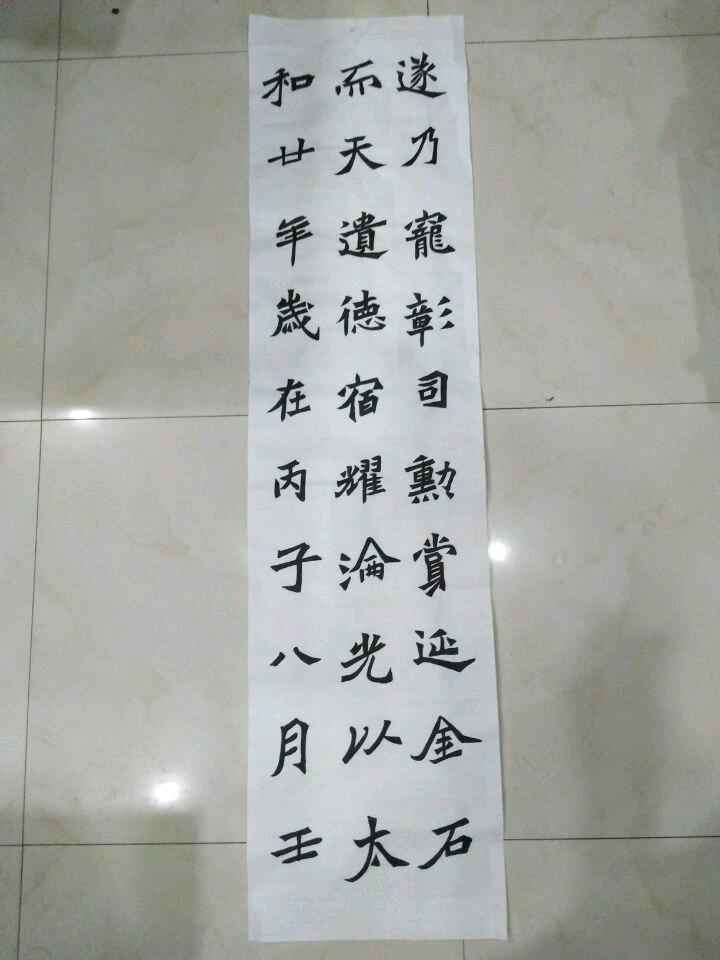 遂乃寵彰司勲賞延金石
而天遺德宿耀淪光以太
和廿年歲在丙子八月壬